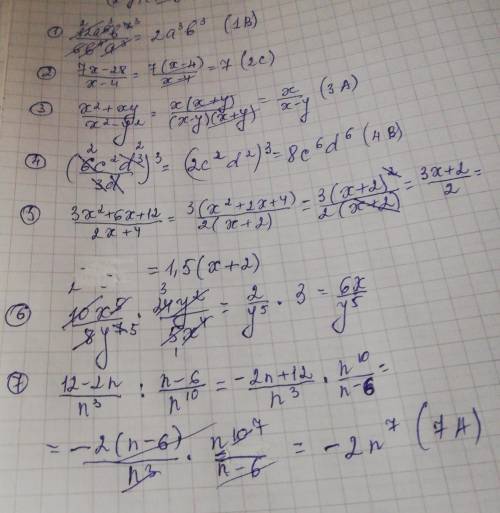 ① 12a⁵b⁷/6b⁴a² = 2a³b³ (1B)
② 7x-28/x-4 = 7(x-4)/x-4 = 7 (2C)
③ x²+xy/x²-y² = x(x+y)/(x-y)(x+y) = x/x-y (3A)
④ (6c²d³/3d)³ = (2c²d²)³ = 8c⁶d⁶ (4B)
⑤ 3x²+6x+12/2x+4 = 3(x²+2x+4)/2(x+2) = 3(x+2)²/2(x+2) = 3x+2/2 =
= 1,5(x+2)
⑥ 10x⁵/8y⁷ · 24y²/5x⁴ = 2/y⁵ · 3 = 6x/y⁵
⑦ 12-2n/n³ : n-6/n¹⁰ = -2n+12/n³ · n¹⁰/n-6 =
= -2(n-6)/n³ · n¹⁰/n-6 = -2n⁷ (7A)